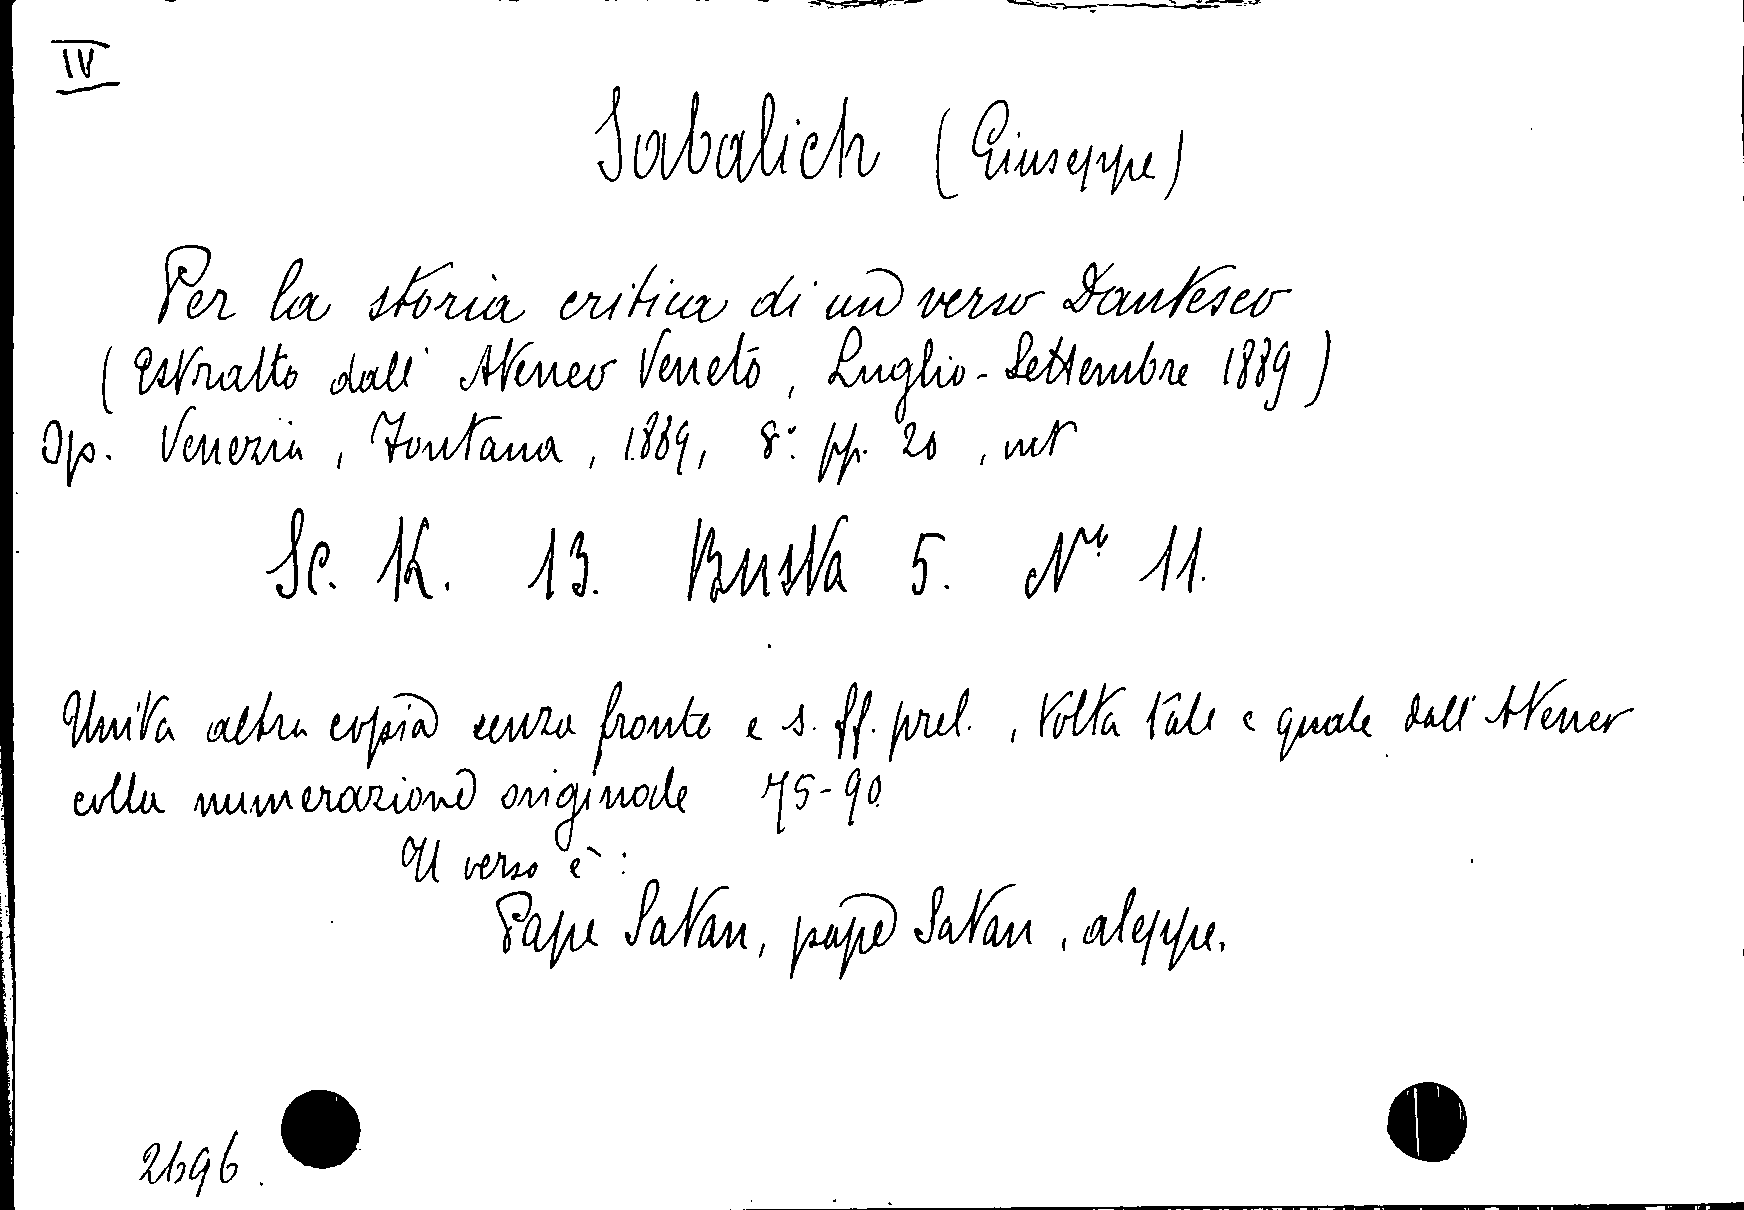 IV
Sabalich (Giuseppe)
Per la storia critica di un verso Dantesco
(Estratto dall' Ateneo Veneto, Luglio-Settembre 1889)
Op. Venezia, Fontana, 1889, 8.º pp. 20, net
Sc. K. 13. Busta 5. Nº 11.
Unita altra copia senza fronte e s. ff. prel., tolta tale e quale dall' Ateneo
colla numerazione originale 75-90
Il verso è:
Pape Satan, pape Satan, aleppe.
2696.